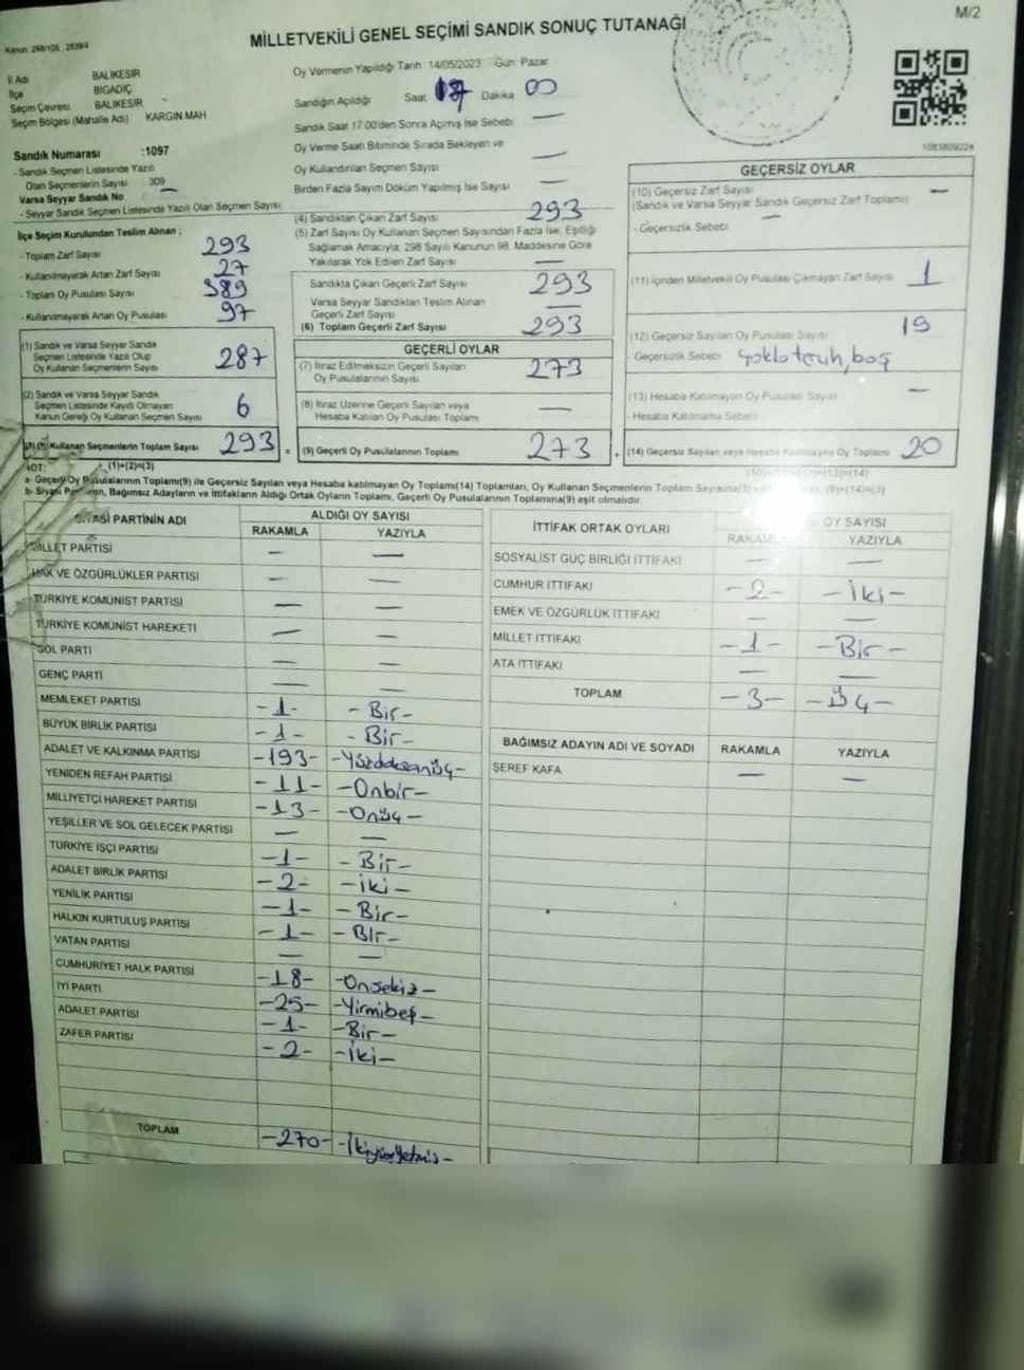 M/2
Kanun: 298/105, 2839/4
MİLLETVEKİLİ GENEL SEÇİMİ SANDIK SONUÇ TUTANAĞI
İl Adı BALIKESİR
İlçe BİGADİÇ
Seçim Çevresi BALIKESİR
Seçim Bölgesi (Mahalle Adı) KARGIN MAH
Sandık Numarası :1097
- Sandık Seçmen Listesinde Yazılı
Olan Seçmenlerin Sayısı 309
Varsa Seyyar Sandık No
- Seyyar Sandık Seçmen Listesinde Yazılı Olan Seçmen Sayısı
İlçe Seçim Kurulundan Teslim Alınan :
- Toplam Zarf Sayısı 293
- Kullanılmayarak Artan Zarf Sayısı 27
- Toplam Oy Pusulası Sayısı 389
- Kullanılmayarak Artan Oy Pusulası 97
(1) Sandık ve Varsa Seyyar Sandık
Seçmen Listesinde Yazılı Olup
Oy Kullanan Seçmenlerin Sayısı 287
(2) Sandık ve Varsa Seyyar Sandık
Seçmen Listesinde Kayıtlı Olmayan
Kanun Gereği Oy Kullanan Seçmen Sayısı 6
Kullanan Seçmenlerin Toplam Sayısı 293
(1)+(2)=(3)
Oy Vermenin Yapıldığı Tarih 14/05/2023 Gün Pazar
Sandığın Açıldığı Saat 17 Dakika 00
Sandık Saat 17:00'den Sonra Açılmış İse Sebebi —
Oy Verme Saati Bitiminde Sırada Bekleyen ve
Oy Kullandırılan Seçmen Sayısı —
Birden Fazla Sayım Döküm Yapılmış İse Sayısı —
(4) Sandıktan Çıkan Zarf Sayısı 293
(5) Zarf Sayısı Oy Kullanan Seçmen Sayısından Fazla İse, Eşitliği
Sağlamak Amacıyla; 298 Sayılı Kanunun 98. Maddesine Göre
Yakılarak Yok Edilen Zarf Sayısı —
Sandıkta Çıkan Geçerli Zarf Sayısı 293
Varsa Seyyar Sandıktan Teslim Alınan
Geçerli Zarf Sayısı —
(6) Toplam Geçerli Zarf Sayısı 293
GEÇERLİ OYLAR
(7) İtiraz Edilmeksizin Geçerli Sayılan
Oy Pusulalarının Sayısı 273
(8) İtiraz Üzerine Geçerli Sayılan veya
Hesaba Katılan Oy Pusulası Toplamı —
(9) Geçerli Oy Pusulalarının Toplamı 273
1083809224
GEÇERSİZ OYLAR
(10) Geçersiz Zarf Sayısı —
(Sandık ve Varsa Seyyar Sandık Geçersiz Zarf Toplamı)
- Geçersizlik Sebebi —
(11) İçinden Milletvekili Oy Pusulası Çıkmayan Zarf Sayısı 1
(12) Geçersiz Sayılan Oy Pusulası Sayısı 19
- Geçersizlik Sebebi boş
(13) Hesaba Katılmayan Oy Pusulası Sayısı —
- Hesaba Katılmama Sebebi
(14) Geçersiz Sayılan veya Hesaba Katılmayan Oy Toplamı 20
NOT:
a- Geçerli Oy Pusulalarının Toplamı(9) ile Geçersiz Sayılan veya Hesaba katılmayan Oy Toplamı(14) Toplamları, Oy Kullanan Seçmenlerin Toplam Sayısına(3)
b- Siyasi Partilerin, Bağımsız Adayların ve İttifakların Aldığı Ortak Oyların Toplamı, Geçerli Oy Pusulalarının Toplamına(9) eşit olmalıdır.
PARTİNİN ADI ALDIĞI OY SAYISI
RAKAMLA YAZIYLA
MİLLET PARTİSİ — —
HAK VE ÖZGÜRLÜKLER PARTİSİ — —
TÜRKİYE KOMÜNİST PARTİSİ — —
TÜRKİYE KOMÜNİST HAREKETİ — —
SOL PARTİ — —
GENÇ PARTİ — —
MEMLEKET PARTİSİ -1- -Bir-
BÜYÜK BİRLİK PARTİSİ -1- -Bir-
ADALET VE KALKINMA PARTİSİ -193- -Yüzdoksanüç-
YENİDEN REFAH PARTİSİ -11- -Onbir-
MİLLİYETÇİ HAREKET PARTİSİ -13- -Onüç-
YEŞİLLER VE SOL GELECEK PARTİSİ — —
TÜRKİYE İŞÇİ PARTİSİ -1- -Bir-
ADALET BİRLİK PARTİSİ -2- -İki-
YENİLİK PARTİSİ -1- -Bir-
HALKIN KURTULUŞ PARTİSİ -1- -Bir-
VATAN PARTİSİ — —
CUMHURİYET HALK PARTİSİ -18- -Onsekiz-
İYİ PARTİ -25- -Yirmibeş-
ADALET PARTİSİ -1- -Bir-
ZAFER PARTİSİ -2- -İki-
TOPLAM -270- -İkiyüzyetmiş-
İTTİFAK ORTAK OYLARI OY SAYISI
RAKAMLA YAZIYLA
SOSYALİST GÜÇ BİRLİĞİ İTTİFAKI — —
CUMHUR İTTİFAKI -2- -İki-
EMEK VE ÖZGÜRLÜK İTTİFAKI — —
MİLLET İTTİFAKI -1- -Bir-
ATA İTTİFAKI — —
TOPLAM -3- -Üç-
BAĞIMSIZ ADAYIN ADI VE SOYADI RAKAMLA YAZIYLA
ŞEREF KAFA — —